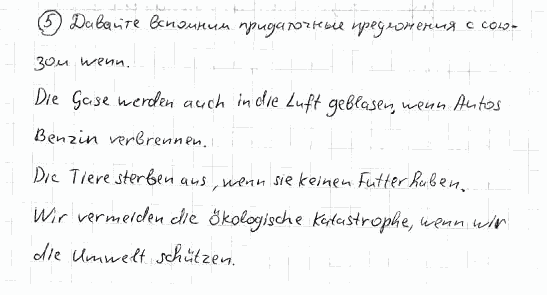 ⑤ Давайте вспомним придаточные предложения с сою-
зом wenn.
Die Gase werden auch in die Luft geblasen, wenn Autos
Benzin verbrennen.
Die Tiere sterben aus, wenn sie keinen Futter haben.
Wir vermeiden die ökologische Katastrophe, wenn wir
die Umwelt schützen.